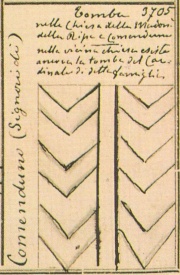 Tomba 3705
nella Chiesa della Madonna
della Ripa e Comenduno
nella vicina chiesa esiste
ancora la tomba del Car-
dinale di detta famiglia
Comenduno (Signori di)